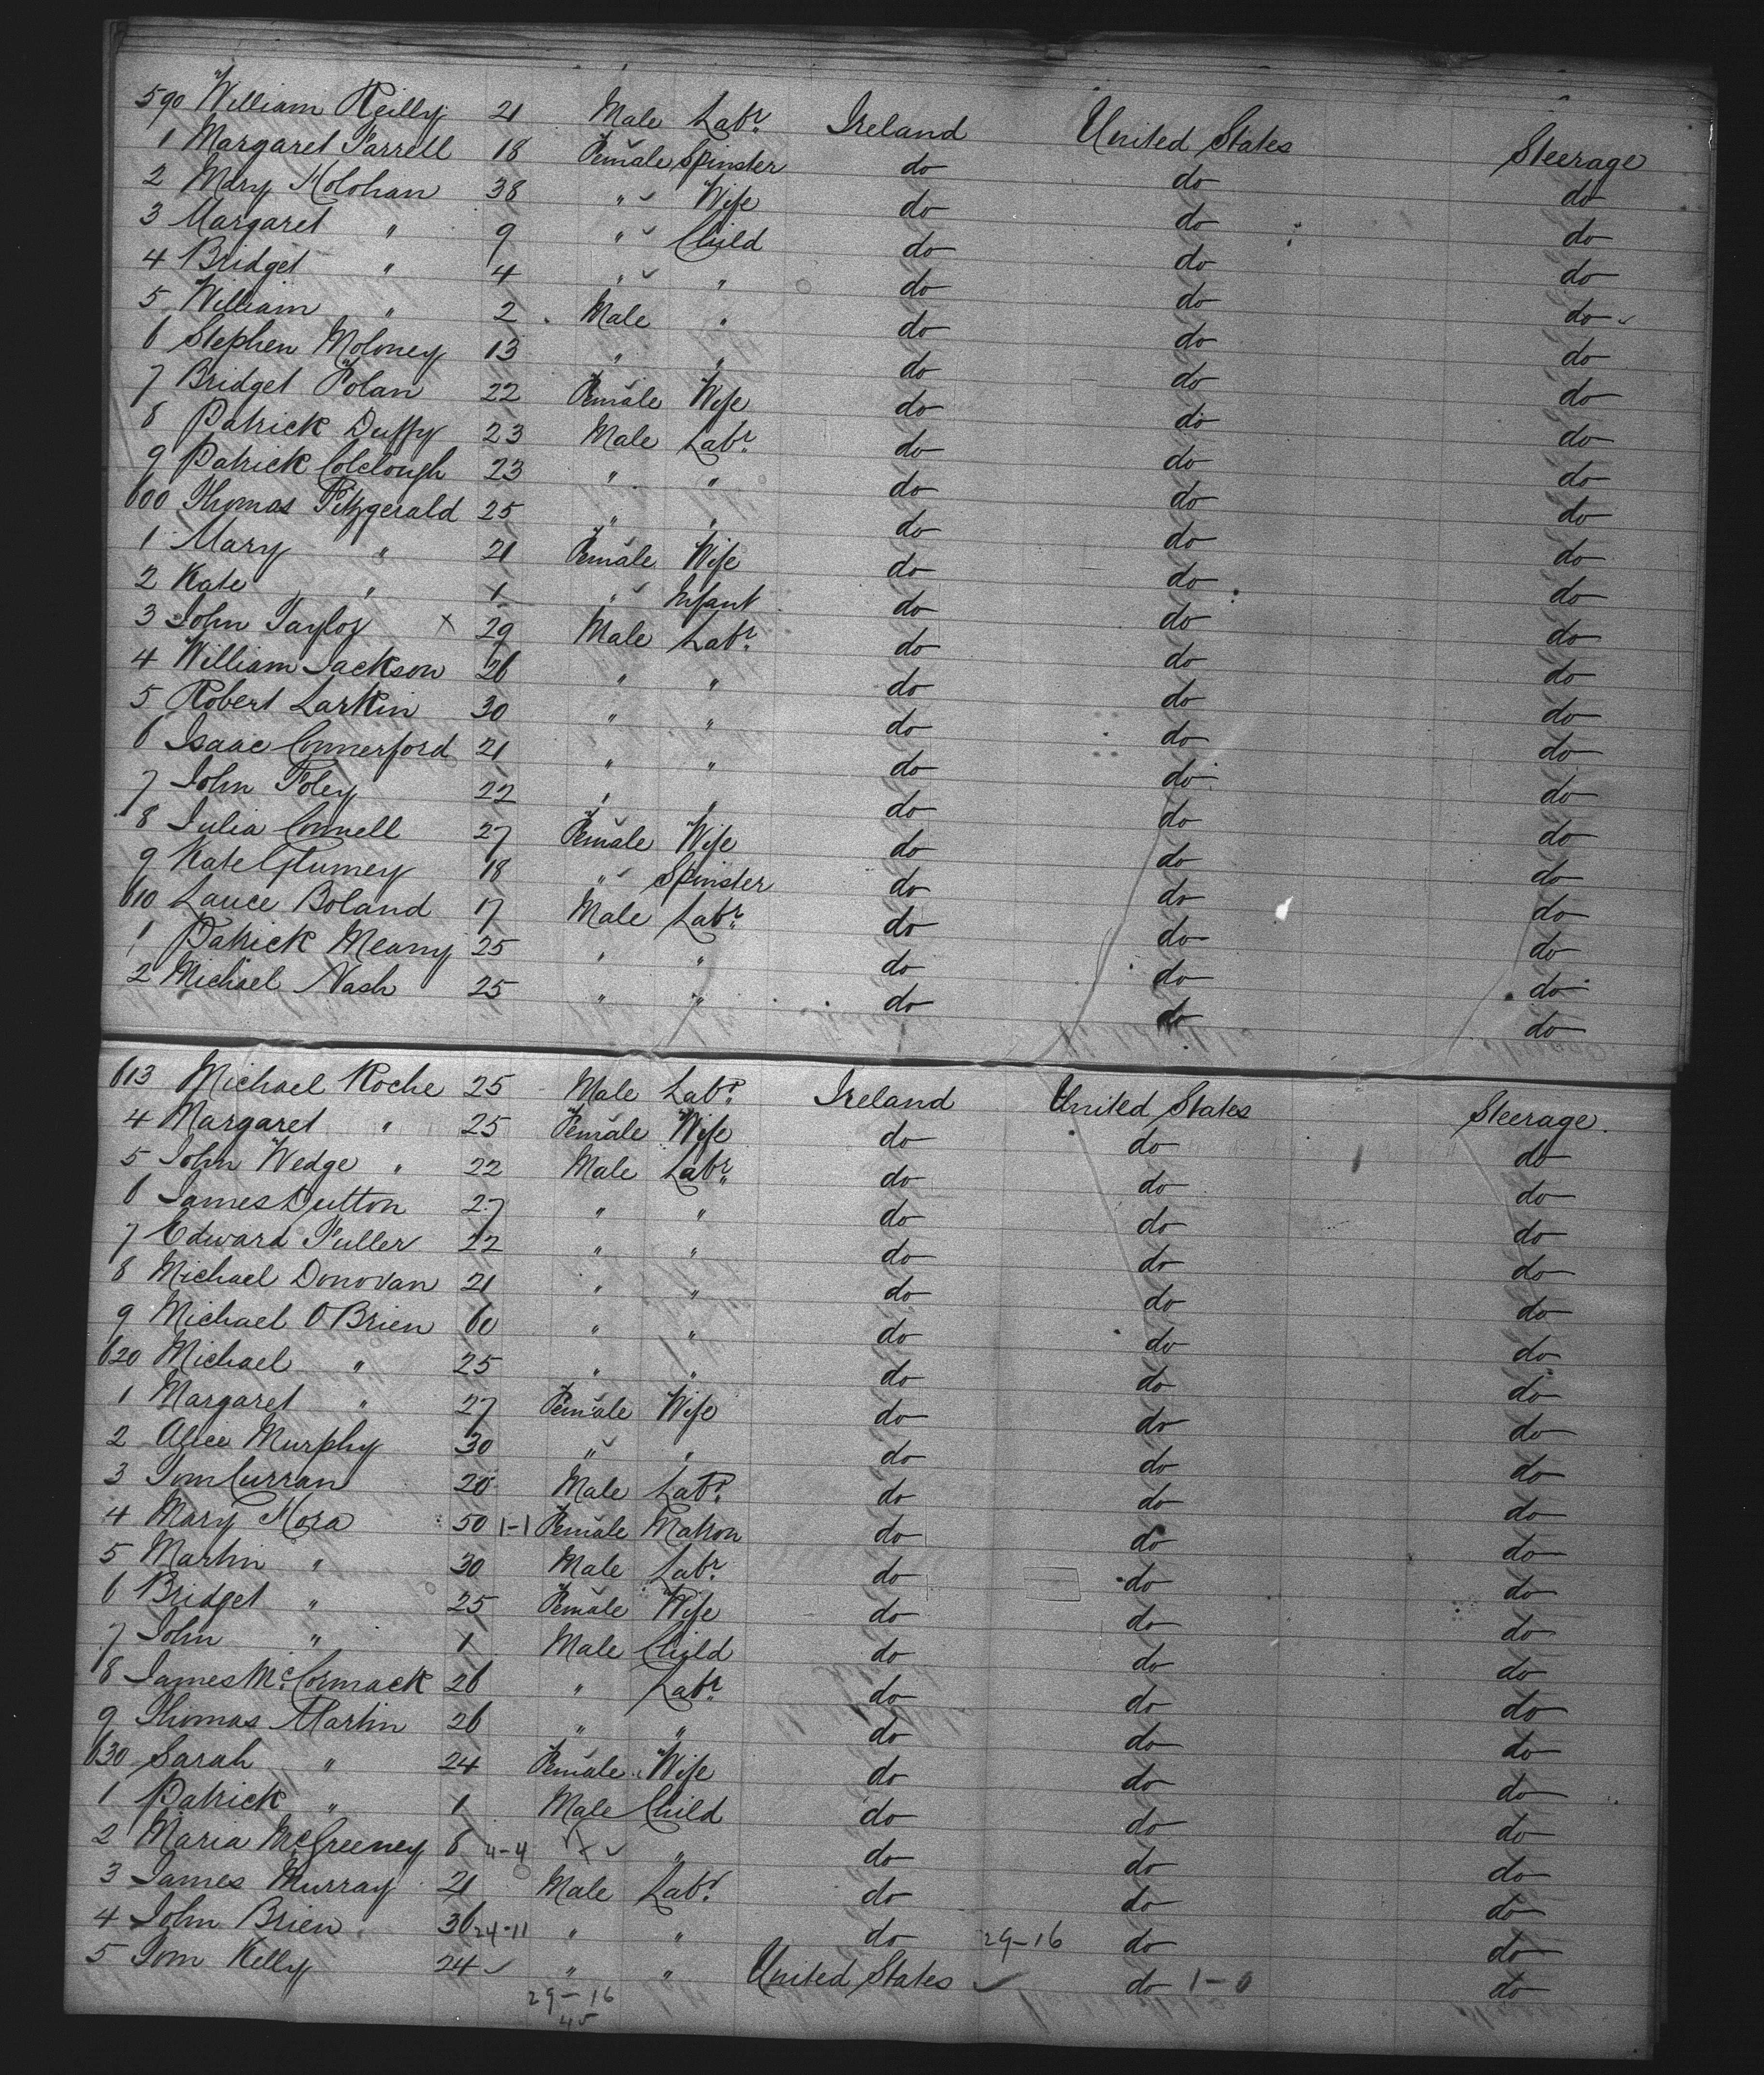 590 William Reilly 21 Male Labr. Ireland United States Steerage
1 Margaret Farrell 18 Female Spinster do do do
2 Mary Holohan 38 " Wife do do do
3 Margaret " 9 " Child do do do
4 Bridget " 4 " " do do do
5 William " 2 Male " do do do
6 Stephen Moloney 13 " " do do do
7 Bridget Polan 22 Female Wife do do do
8 Patrick Duffy 23 Male Labr. do do do
9 Patrick Colclough 23 " " do do do
600 Thomas Fitzgerald 25 " " do do do
1 Mary " 21 Female Wife do do do
2 Kate " 1 " Infant do do do
3 John Taylor X 29 Male Labr. do do do
4 William Jackson 26 " " do do do
5 Robert Larkin 30 " " do do do
6 Isaac Connerford 21 " " do do do
7 John Foley 22 " " do do do
8 Julia Connell 27 Female Wife do do do
9 Kate 18 " Spinster do do do
610 Lauce Boland 17 Male Labr. do do do
1 Patrick Meany 25 " " do do do
2 Michael Nash 25 " " do do do
613 Michael Roche 25 Male Labr. Ireland United States Steerage.
4 Margaret " 25 Female Wife do do do
5 John Wedge " 22 Male Labr. do do do
6 James Dutton 27 " " do do do
7 Edward Fuller 22 " " do do do
8 Michael Donovan 21 " " do do do
9 Michael O Brien 60 " " do do do
620 Michael " 25 " " do do do
1 Margaret " 27 Female Wife do do do
2 Alice Murphy 30 " " do do do
3 Tom Curran 20 Male Labr. do do do
4 Mary Hora 50 1-1 Female Matron do do do
5 Martin " 30 Male Labr. do do do
6 Bridget " 25 Female Wife do do do
7 John " 1 Male Child do do do
8 James McCormack 26 " Labr. do do do
9 Thomas Martin 26 " " do do do
630 Sarah " 24 Female Wife do do do
1 Patrick " 1 Male Child do do do
2 Maria McGreeney 6 4-4 " do do do
3 James Murray 21 Male Labr. do do do
4 John Brien 36 24-11 " " do 29-16 do do
5 Tom Kelly 24 " " United States do 1-0 do
29-16
45